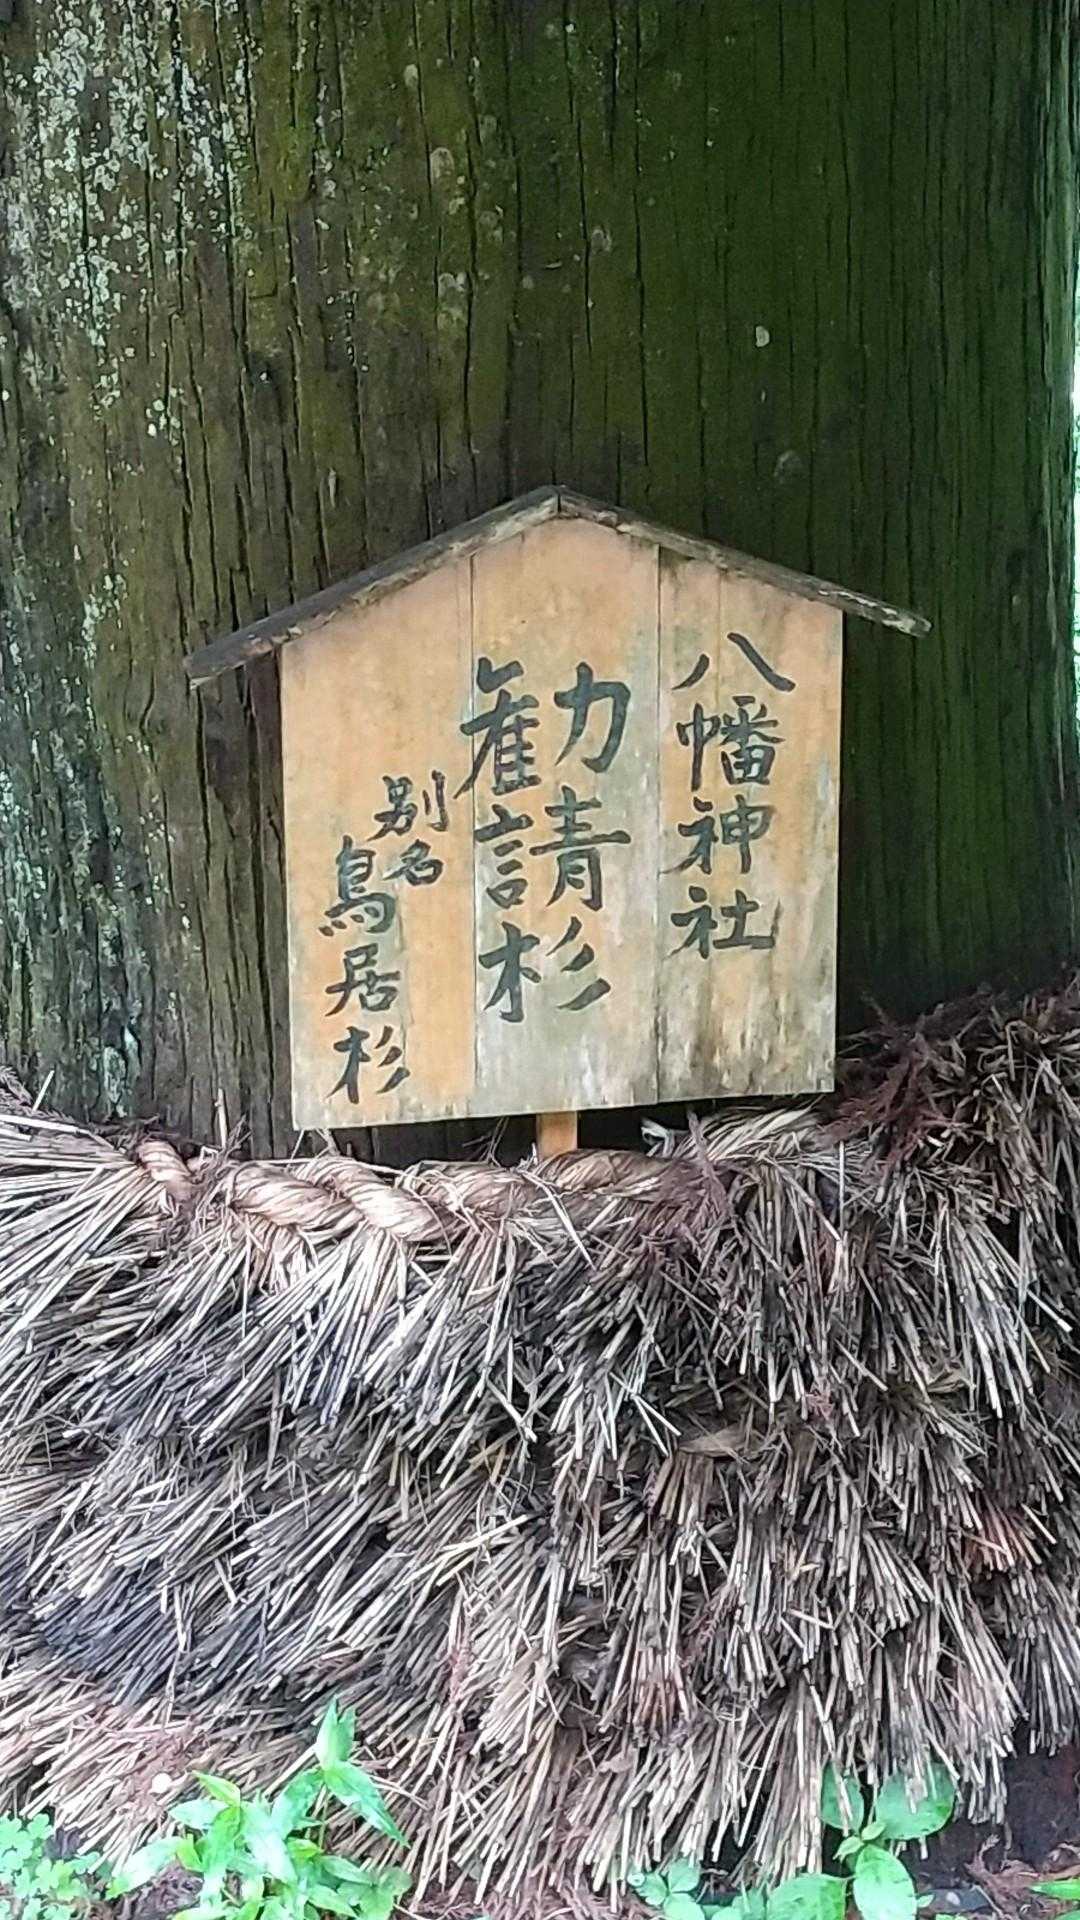 八幡神社
勧請杉
別名
鳥居杉